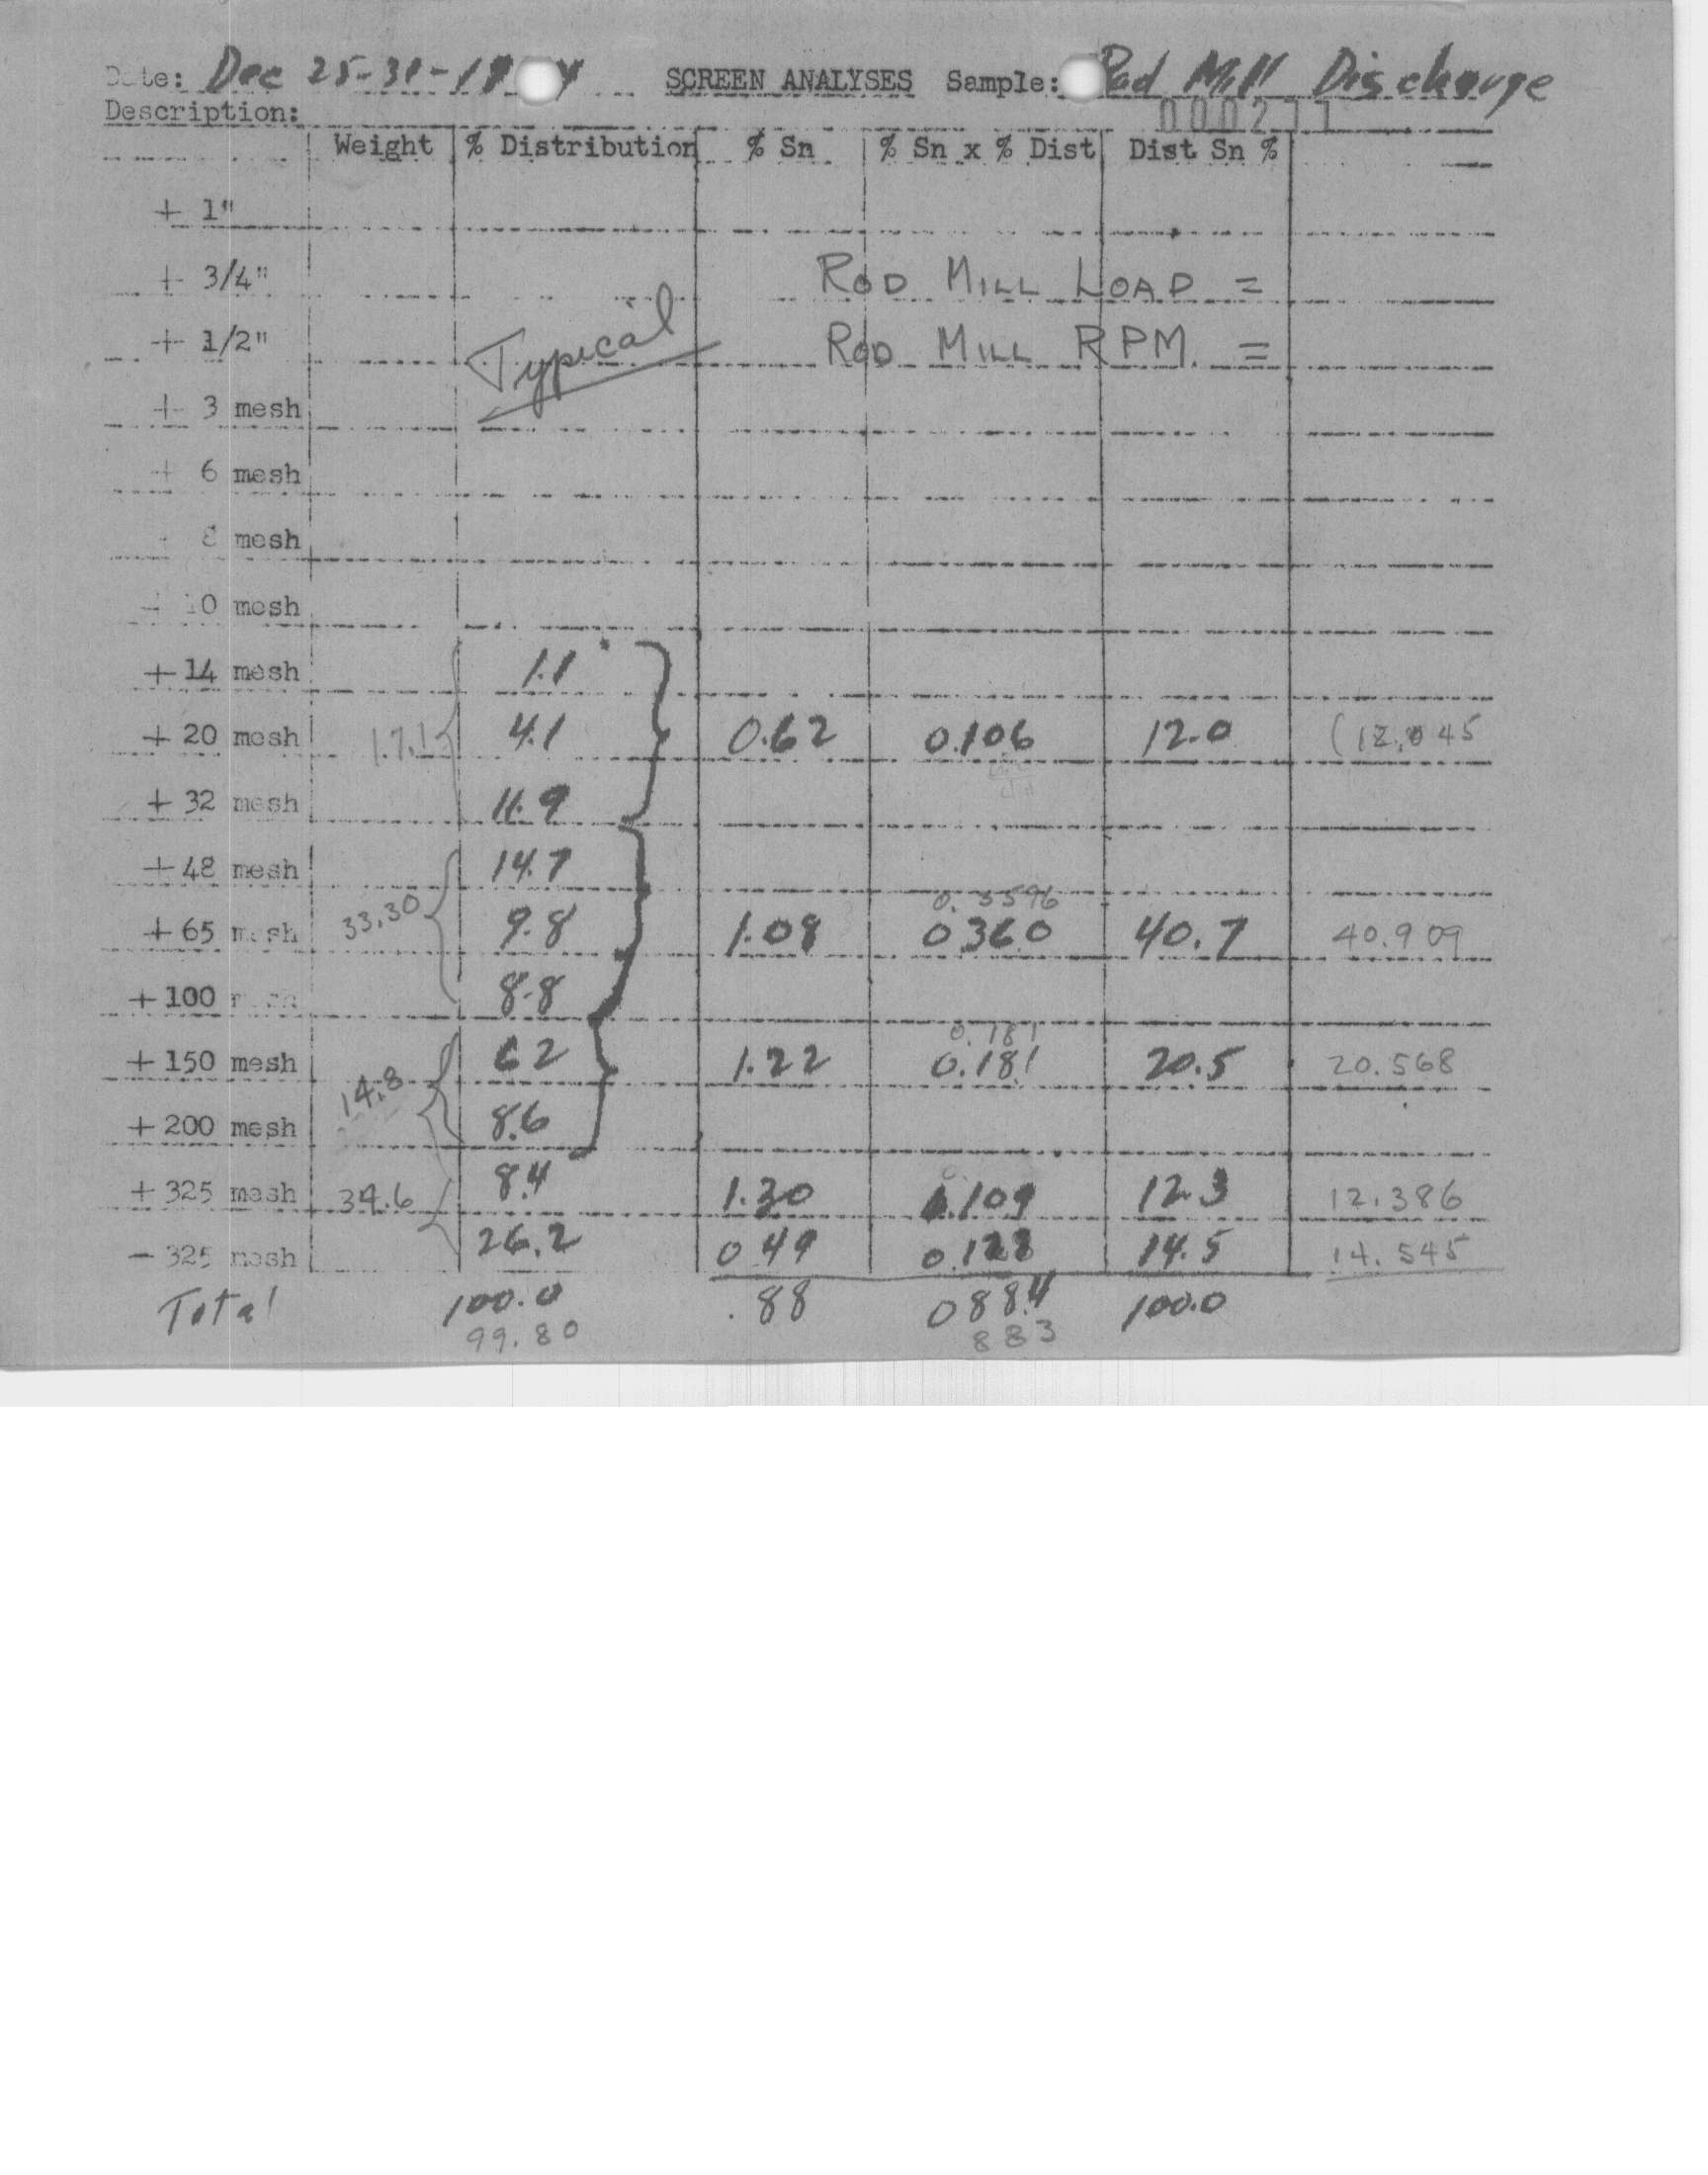 Date: Dec 25-31-19 4 SCREEN ANALYSES Sample: Rod Mill Discharge
Description: 000211
Weight % Distribution % Sn % Sn x % Dist Dist Sn %
+ 1"
+ 3/4" ROD MILL LOAD =
+ 1/2" Typical ROD MILL RPM. =
+ 3 mesh
+ 6 mesh
8 mesh
+ 10 mesh
+ 14 mesh 1.1
+ 20 mesh 17.1 4.1 0.62 0.106 12.0 (12.045
+ 32 mesh 11.9
+ 48 mesh 14.7
0.3596
+ 65 mesh 33.30 9.8 1.08 0360 40.7 40.909
+ 100 mesh 8.8
0.181
+ 150 mesh 14.8 62 1.22 0.181 20.5 20.568
+ 200 mesh 8.6
+ 325 mesh 34.6 8.4 1.30 .109 12.3 12.386
- 325 mesh 26.2 049 0.128 14.5 14.545
Total 100.0 .88 0884 100.0
99.80 883